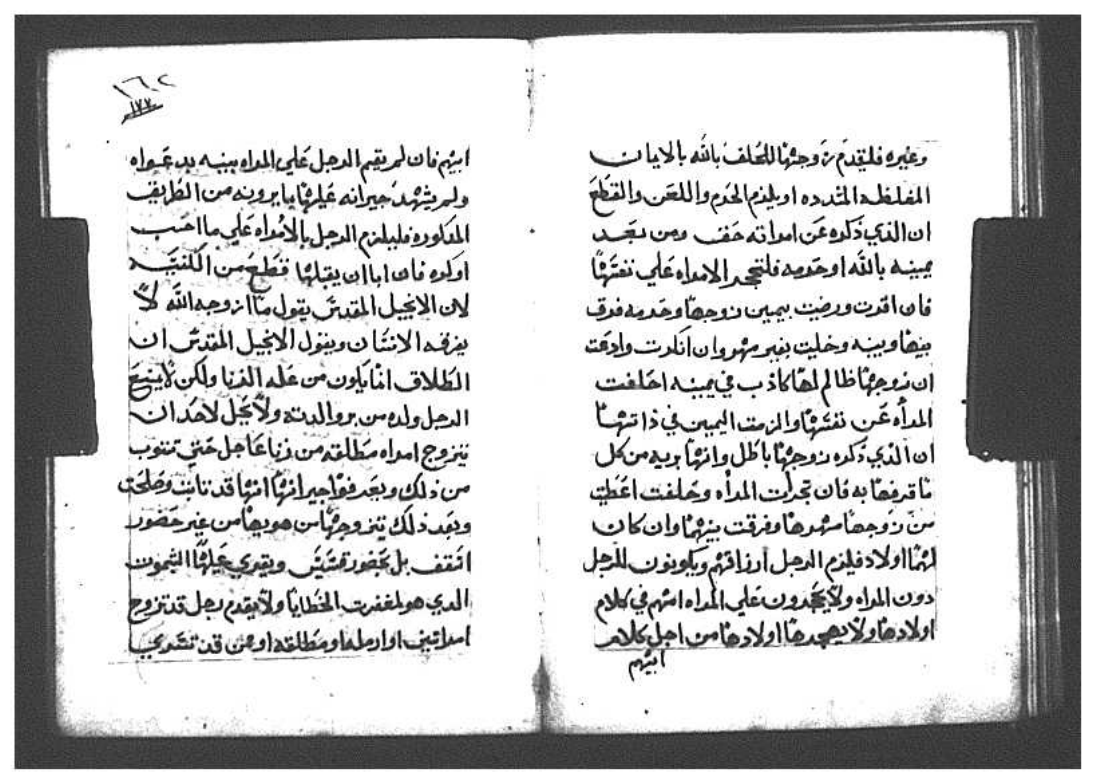 وغيره فليقدم زوجتها للحلف بالله بالايمان
المغلظه المشدده او يلزم الحرم واللعن والقطع
ان الذي ذكره عن امراته حق ومن بعد
يمينه بالله او حرمه فلتجحد الامراه علي نفسها
فان اقرت ورضيت بيمين زوجها وحرمه فرق
بينها وبينه وخليت بغير مهر وان انكرت وادعت
ان زوجها ظالم لها كاذب في يمينه احلفت
المرأه عن نفسها والزمت اليمين في ذاتها
ان الذي ذكره زوجها باطل وانها بريه من كل
ما قرفها به فان تجرأت المرأه وحلفت اعطيت
من زوجها مهرها وفرقت بينهما وان كان
لهما اولاد فليلزم الرجل ارزاقهم ويكونون للرجل
دون المراه ولا يجحدون علي المراه امهم في كلام
اولادها ولا يهجدها اولادها من اجل كلام
ابيهم
١٦٢
١٧٧
ابيهم فان لم يقيم الرجل علي المراه بينه بدعواه
ولم يشهد جيرانه عليها بما يرونه من الطريق
المذكوره فليلزم الرجل بالامراه علي ما احب
او كره فان ابا ان يقبلها قطع من الكنيسه
لان الانجيل المقدس يقول ما ازوجه الله لا
يفرقه الانسان ويقول الانجيل المقدس ان
الطلاق انما يكون من عله الزنا ولكن لا يمنع
الرجل ولده من بر والدته ولا يحل لاحد ان
يتزوج امراه مطلقه من زنا عاجل حتي تتوب
من ذلك ويعرفوا جيرانها انها قد تابت وصلحت
وبعد ذلك يتزوجها من هويها من غير حضور
اسقف بل بحضور قسيس ويقري عليها الشمون
الدي هو لمغفرت الخطايا ولا يقدم رجل قد تزوج
امراتين او ارمله او مطلقه او من قد تسري